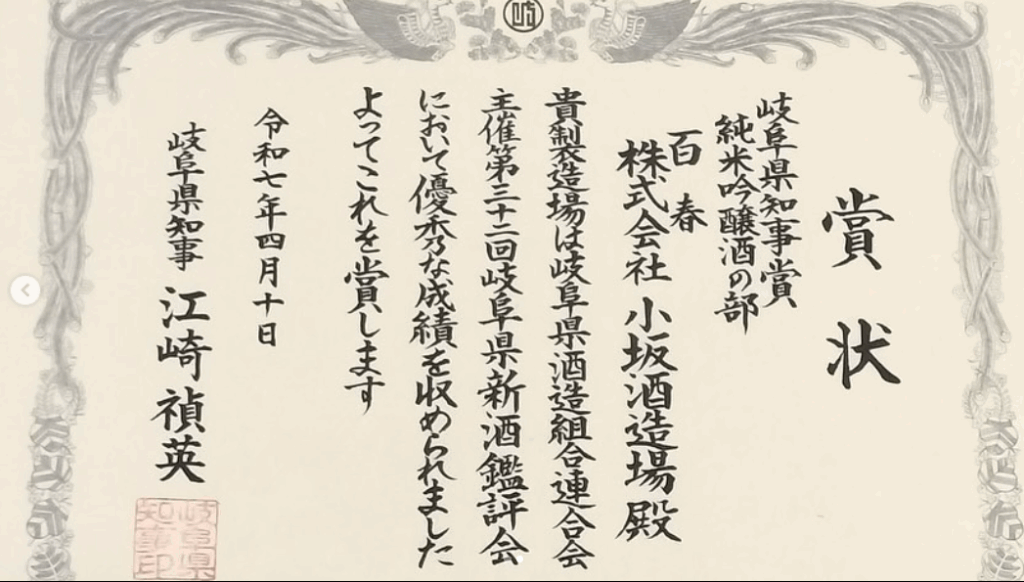 賞状
岐阜県知事賞
純米吟醸酒の部
百春
株式会社 小坂酒造場殿
貴製造場は岐阜県酒造組合連合会
主催第三十二回岐阜県新酒鑑評会
において優秀な成績を収められました
よってこれを賞します
令和七年四月十日
岐阜県知事 江崎禎英
岐阜県
知事印